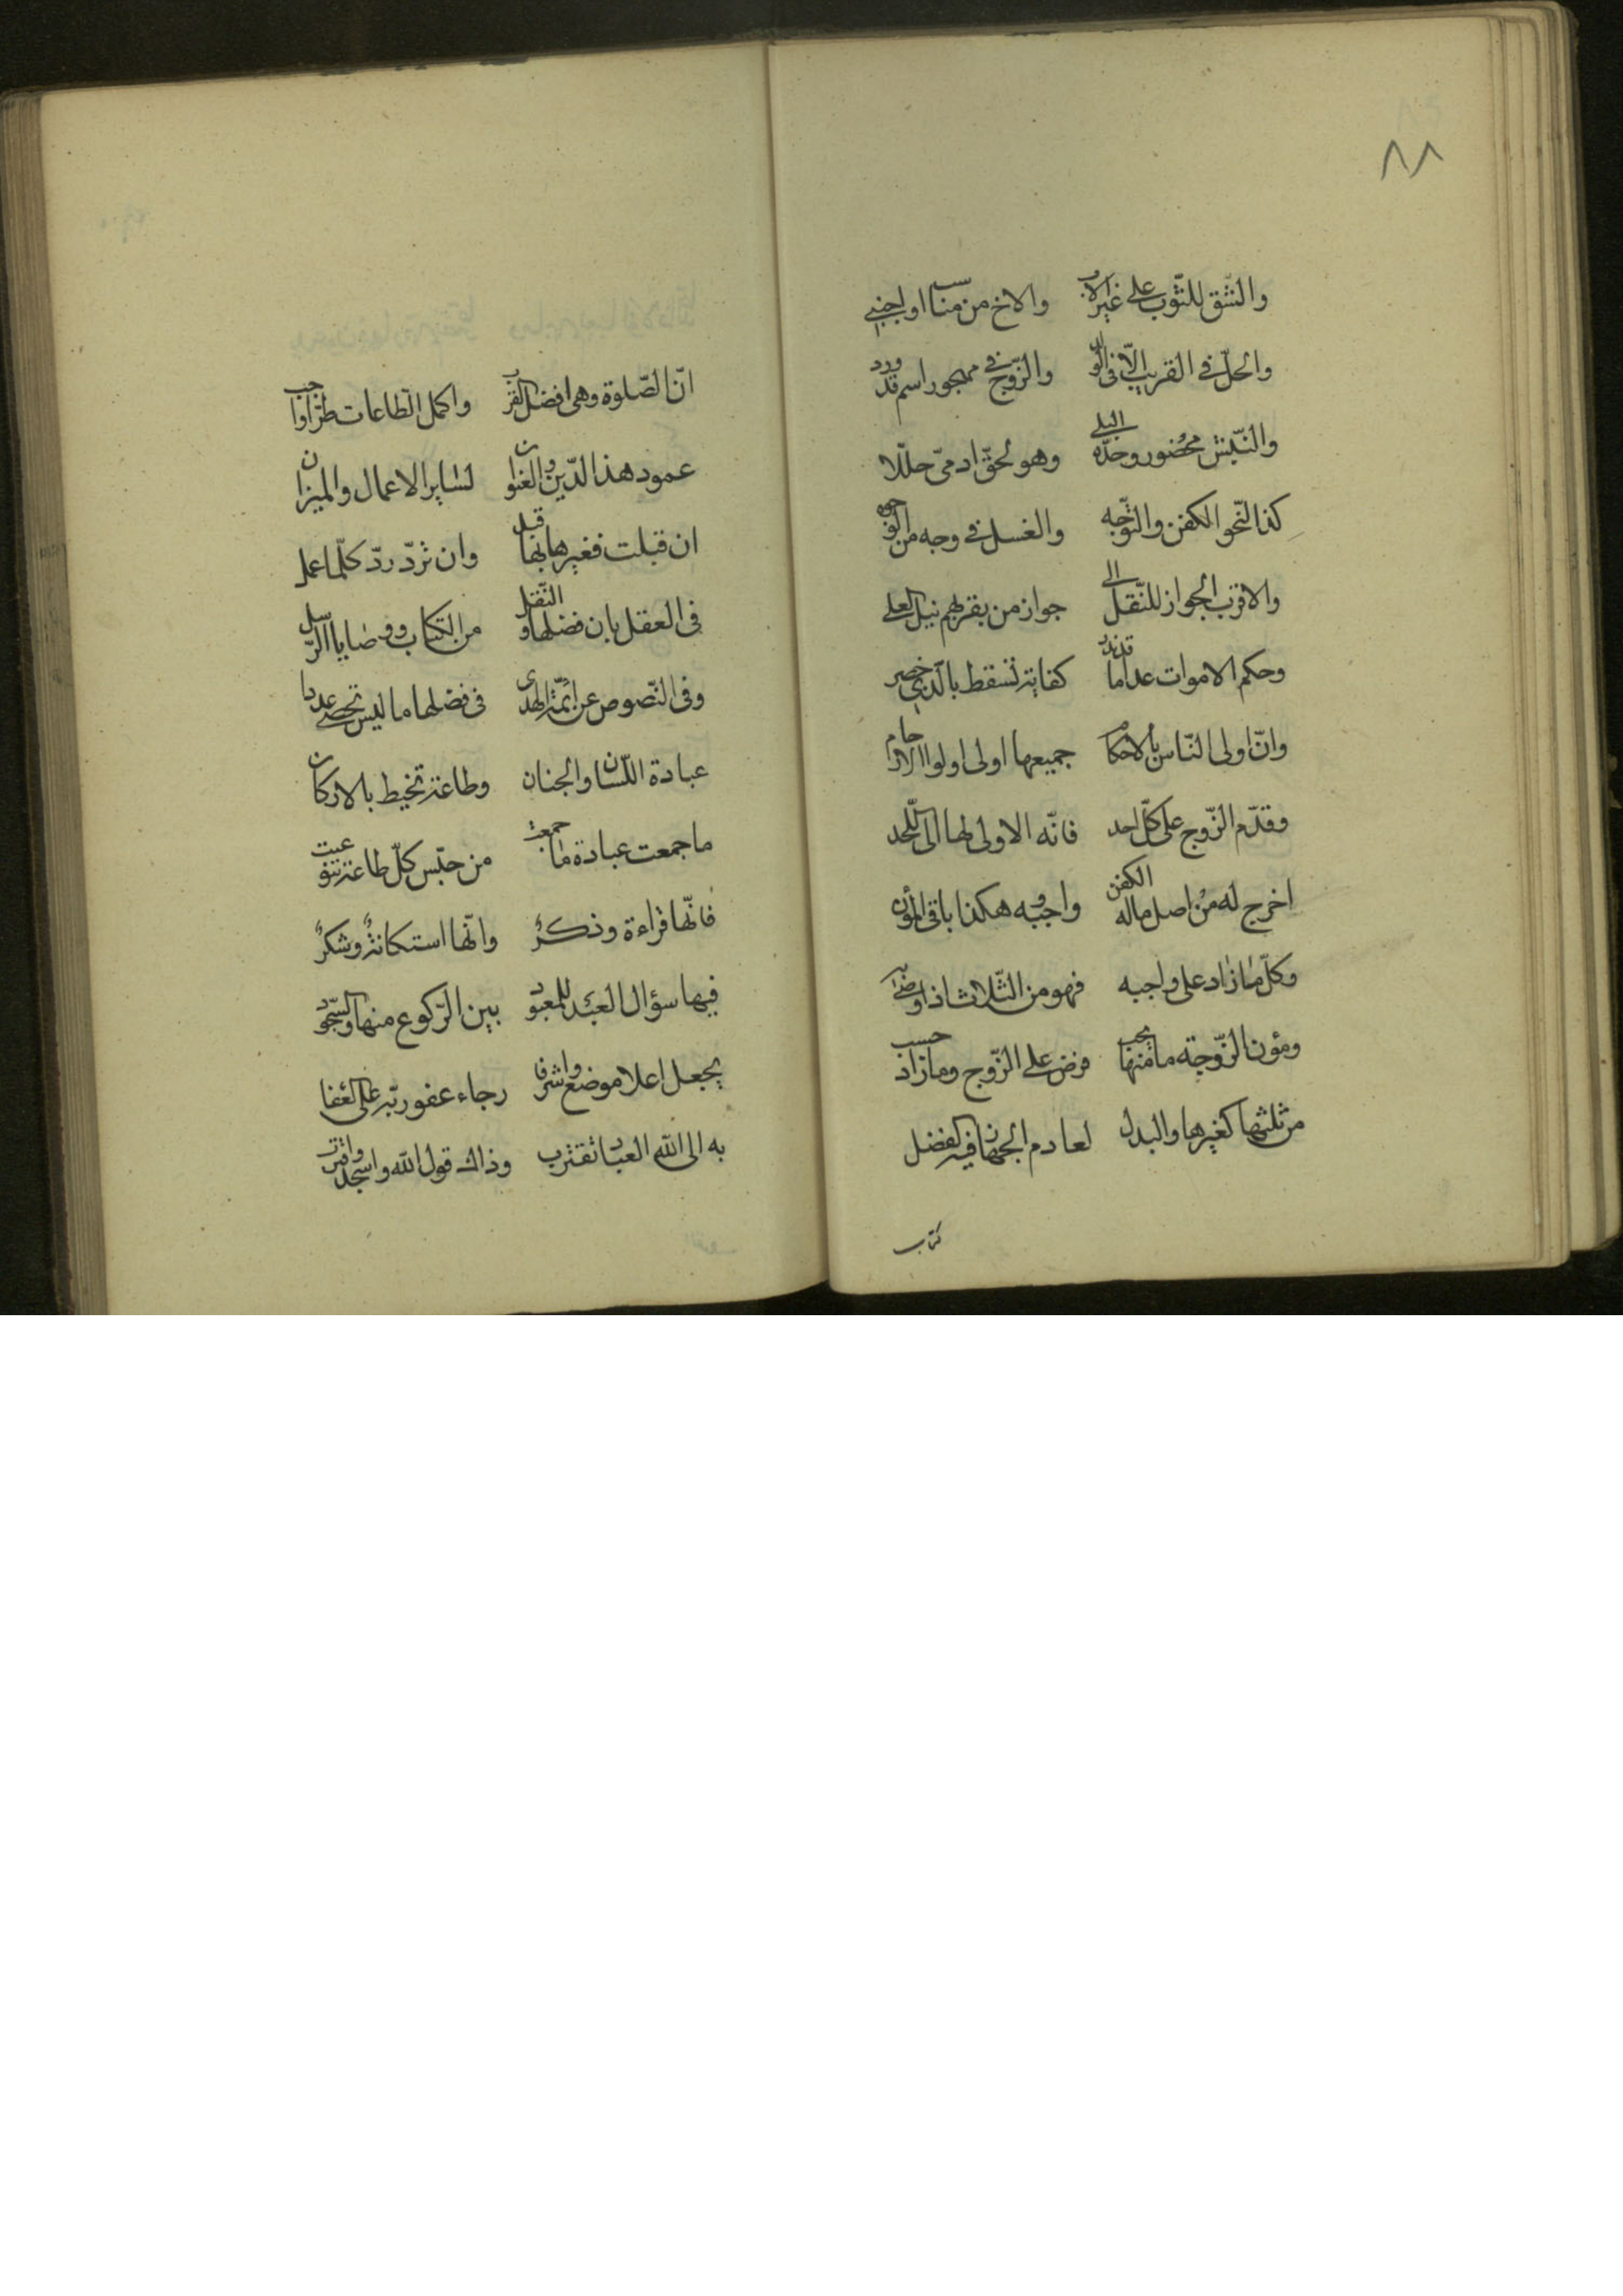 ٨٨
والشق للثوب على غير الاب والاخ من مناسب او اجنبي
والحلّ في القريب الّا في الولد والزّوج في مهجور اسم قد ورد
والنّبش محضور وحدّه البلى وهو لحقّ ادمىّ حلّلا
كذا لنحو الكفن والتوجّه والغسل في وجه من الوجوه
والاقرب الجواز للنّقل الى جواز من بقربهم نيل العلى
وحكم الاموات عدا ما قد ندب كفاية تسقط بالّذي
وانّ اولى النّاس بالاحكام جميعها اولى اولوا الارحام
وقدّم الزّوج على كلّ احد فانّه الاولى لها الى اللّحد
اخرج له من اصل ماله الكفن واجبه وهكذا باقى المؤن
وكلّ ما زاد على واجبه فهو من الثّلث اذا اوصى به
ومؤن الزّوجة ما منها يجب فرض على الزّوج وما زاد حسب
من ثلثها كغيرها والبدل لعادم الجهاز فيه الفضل
كتاب
انّ الصّلوة وهى افضل القرب واكمل الطاعات طرّا اوجب
عمود هذا الدّين والعنوان لساير الاعمال والميزان
ان قبلت فغيرها بها قبل وان تردّ ردّ كلّما عمل
فى العقل بان فضلها والنّقل من الكتاب ووصايا الرّسل
وفى النّصوص عن ائمّة الهدى فى فضلها ما ليس تحصى عددا
عبادة اللّسان والجنان وطاعة تحيط بالاركان
ما جمعت عبادة ما جمعت من جنس كلّ طاعة تنوعت
فانّها قراءة وذكرٌ وانّها استكانةٌ وشكرٌ
فيها سؤال العبد للمعبود بين الرّكوع منها والسّجود
يجعل اعلا موضع واشرفا رجاء عفو ربّه على العفا
به الى اللّه العباد تقترب وذاك قول اللّه واسجد واقترب